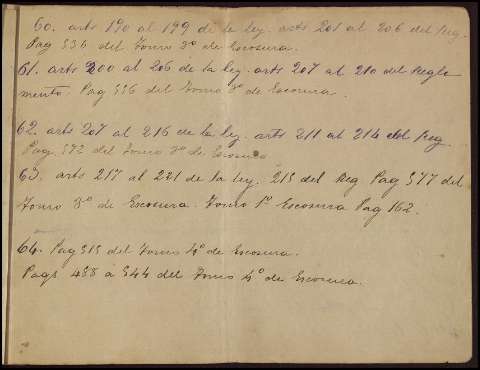 60. arts 190 al 199 de la ley. arts 201 al 206 del Reg.
Pag 536 del Tomo 3º de Escosura.
61. arts 200 al 206 de la ley. arts 207 al 210 del Regla
mento. Pag 556 del Tomo 3º de Escosura.
62. arts 207 al 216 de la ley. arts 211 al 214 del Reg.
Pag 572 del Tomo 3º de Escosura
63. arts 217 al 221 de la ley. 215 del Reg Pag 577 del
Tomo 3º de Escosura. Tomo 1º Escosura Pag 162.
64. Pag 515 del Tomo 4º de Escosura.
Pags 488 á 544 del Tomo 4º de Escosura.